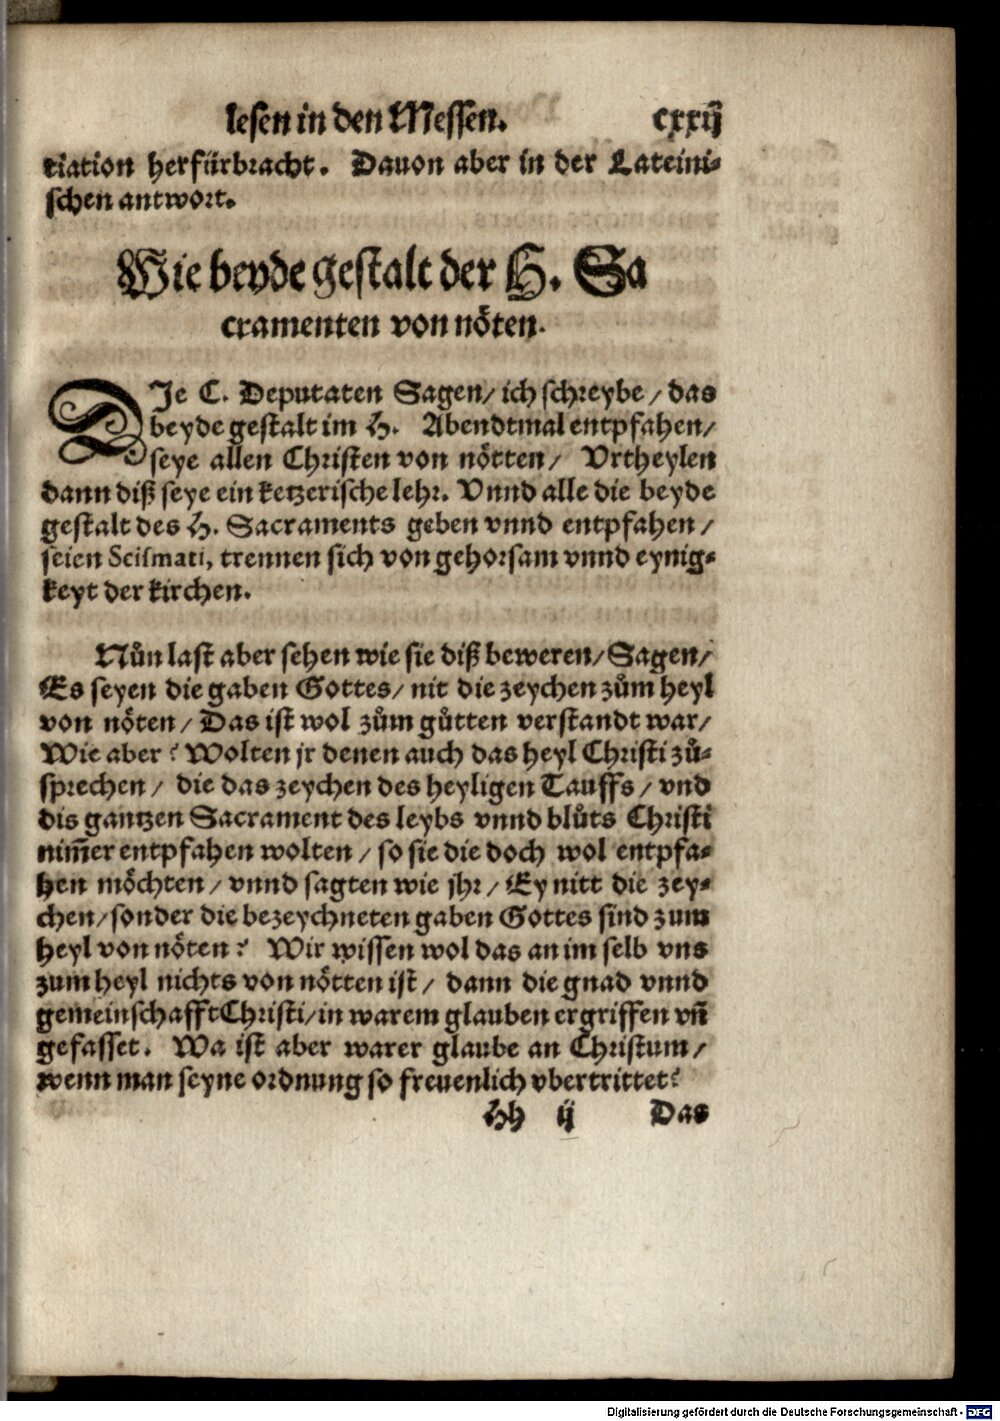 lesen in den Messen. cxxij
tiation herfürbracht. Dauon aber in der Lateini-
schen antwort.
Wie beyde gestalt der H. Sa
cramenten von nöten.
DJe C. Deputaten Sagen/ ich schreybe/ das
beyde gestalt im H. Abendtmal entpfahen/
seye allen Christen von nötten/ Vrtheylen
dann diß seye ein ketzerische lehr. Vnnd alle die beyde
gestalt des H. Sacraments geben vnnd entpfahen/
seien Scismati, trennen sich von gehorsam vnnd eynig-
keyt der kirchen.
Nůn last aber sehen wie sie diß beweren/ Sagen/
Es seyen die gaben Gottes/ nit die zeychen zům heyl
von nöten/ Das ist wol zům gůtten verstandt war/
Wie aber? Wolten jr denen auch das heyl Christi zů-
sprechen/ die das zeychen des heyligen Tauffs/ vnd
dis gantzen Sacrament des leybs vnnd blůts Christi
nim̄er entpfahen wolten/ so sie die doch wol entpfa-
hen möchten/ vnnd sagten wie jhr/ Ey nitt die zey-
chen/ sonder die bezeychneten gaben Gottes sind zum
heyl von nöten? Wir wissen wol das an im selb vns
zum heyl nichts von nötten ist/ dann die gnad vnnd
gemeinschafft Christi/ in warem glauben ergriffen vn̄
gefasset. Wa ist aber warer glaube an Christum/
wenn man seyne ordnung so freuenlich vbertrittet?
Hh ij Das
Digitalisierung gefördert durch die Deutsche Forschungsgemeinschaft - DFG